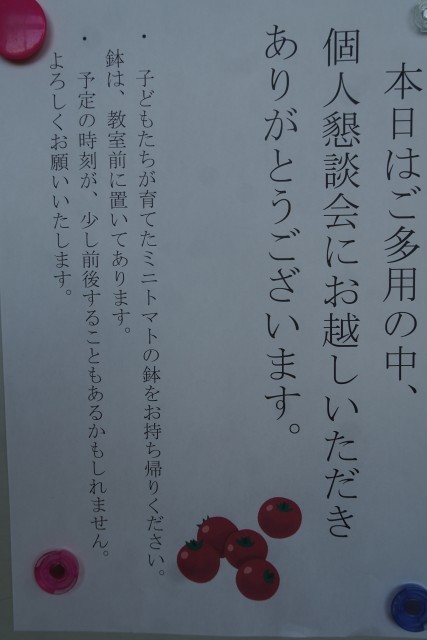 本日はご多用の中、
個人懇談会にお越しいただき
ありがとうございます。
・ 子どもたちが育てたミニトマトの鉢をお持ち帰りください。
鉢は、教室前に置いてあります。
・ 予定の時刻が、少し前後することもあるかもしれません。
よろしくお願いいたします。